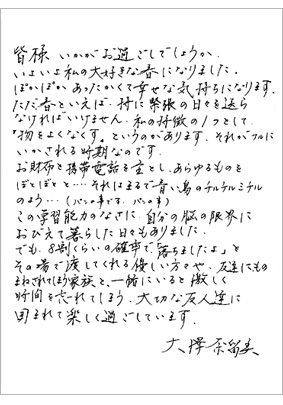 皆様 いかがお過ごしでしょうか.
いよいよ私の大好きな春になりました.
ぽかぽかあったかくて幸せな気持ちになります.
ただ、春といえば、特に緊張の日々を送ら
なければいけません. 私の特徴の1つとして.
"物をよくなくす" というのがあります. それがフルに
いかされる時期なのです.
お財布と携帯電話を主とし、あらゆるものを
ぽとぽとと… それはまるで青い鳥のチルチルミチル
のよう… (パンの事です. パンの事)
この学習能力のなさに、自分の脳の限界に
おびえて暮らした日々もありました.
でも. 8割くらいの確率で「落ちましたよ」と
その場で渡してくれる優しい方々や. 友達にもの
まねされてしまう家族と、一緒にいると激しく
時間を忘れてしまう. 大切な友人達に
囲まれて楽しく過ごしています.
大澤奈留美